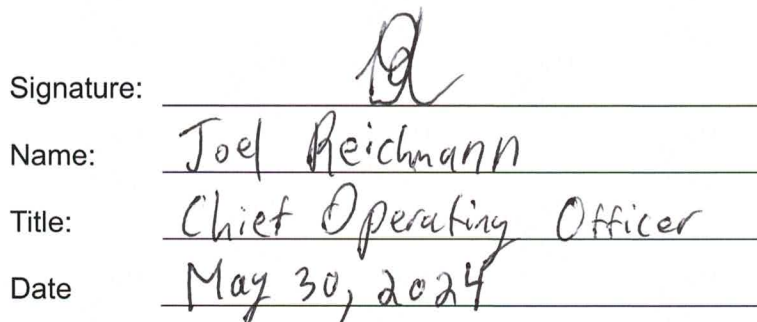 Signature:
Name: Joel Reichmann
Title: Chief Operating Officer
Date May 30, 2024